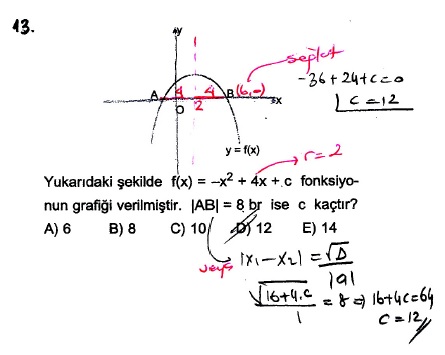 13.
y
seplat
-36 + 24 + c = 0
c = 12
A 4 4 B (6,0)
O 2 x
y = f(x)
r = 2
Yukarıdaki şekilde f(x) = –x² + 4x + c fonksiyo-
nun grafiği verilmiştir. |AB| = 8 br ise c kaçtır?
A) 6 B) 8 C) 10 D) 12 E) 14
veya
|x₁ - x₂| = √D / |a|
√16+4.c / 1 = 8 ⇒ 16+4c=64
c = 12